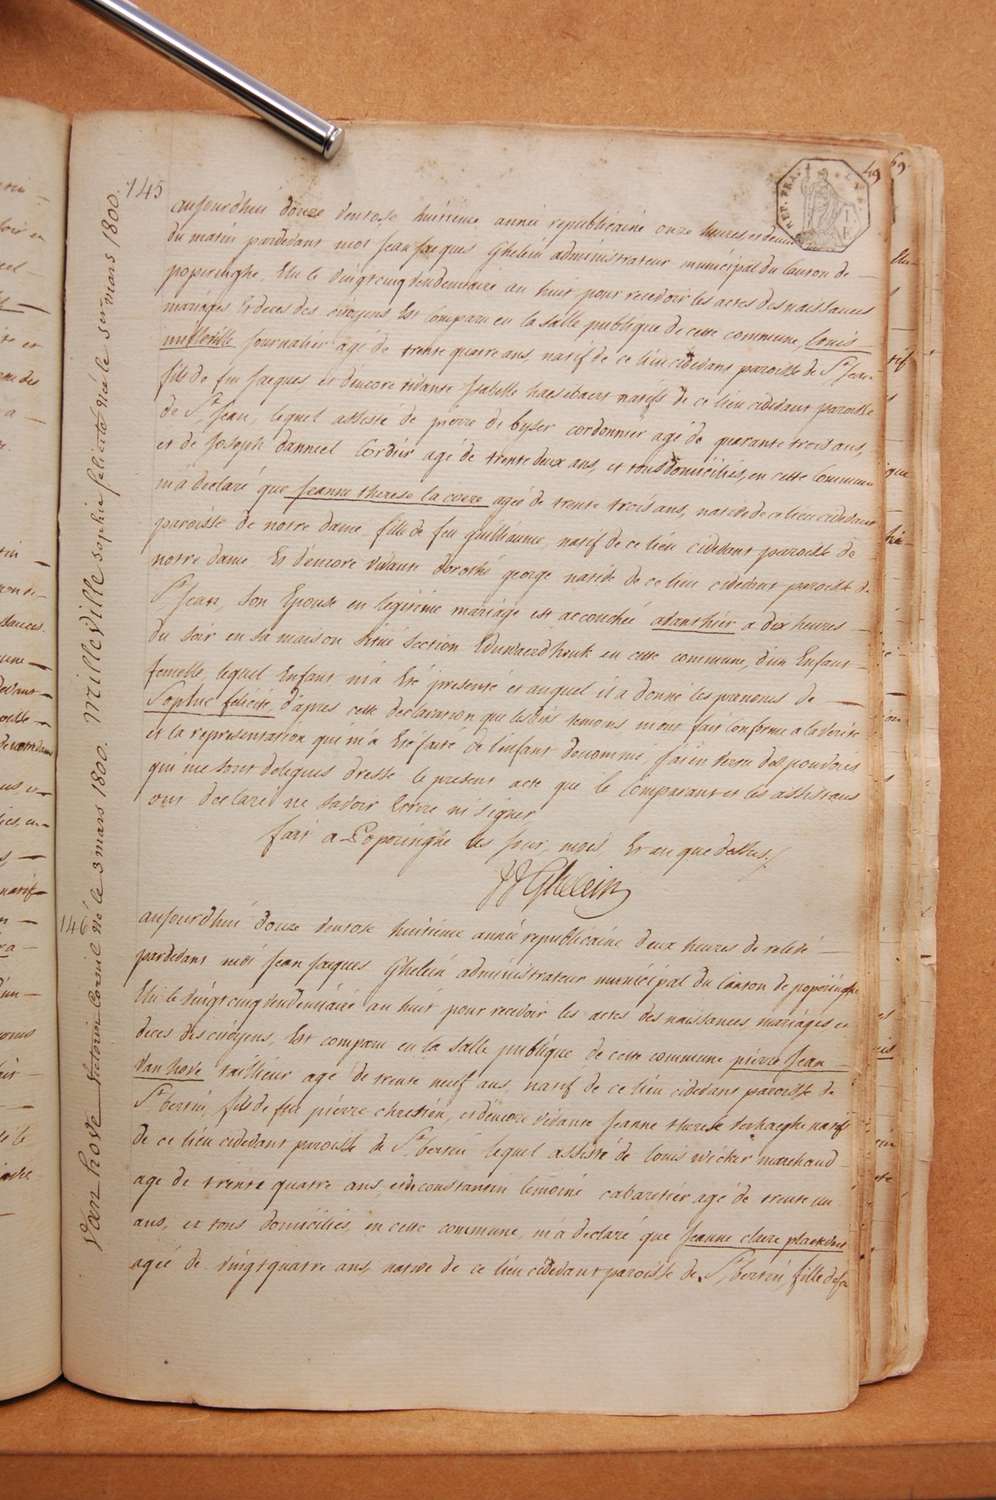 49 69
REP. FRA.
145
aujourdhui douze ventose huitieme année republicaine onze heures et demie
du matin pardevant moi Jean Jaques Ghelein administrateur municipal du Canton de
poperinghe. Elu le vingtcinq vendemiaire an huit pour recevoir les actes des naissances
mariages et deces des citoyens Est comparu en la salle publique de cette commune, Louis
milleville journalier agé de trente quatre ans, natif de ce lieu cidevant paroisse de St Jean
fils de feu Jacques et d'encore vivante Isabelle haesebaert native de ce lieu cidevant paroisse
de St Jean, lequel assisté de pierre de byser cordonnier agé de quarante trois ans,
et de Joseph danneel Cordier agé de trente deux ans, et tous domiciliés, en cette Commune
m'a declaré que Jeanne therese la coere ageé de trente trois ans, native de ce lieu cidevant
paroisse de notre dame fille de feu guilliaume, natif de ce lieu cidevant paroisse de
notre dame Et d'encore vivante dorothé george native de ce lieu cidevant paroisse de
St Jean, son Epouse en legitime mariage est accouchée avanthier a dix heures
du soir en sa maison situé section Eduwaerdhouk en cette commune, d'un Enfant
femelle, lequel Enfant m'a été presenté et auquel il a donné les prenoms de
Sophie felicité, d'apres cette declaration que lesdits temoins m'ont fait conforme a la verité
et la representation qui m'a été faite de l'enfant denommé, j'ai en vertu des pouvoirs
qui me sont delegués dressé le present acte que le Comparant et les assistans
ont declaré ne savoir Ecrire ni signer
fait a Poperinghe les jour, mois Et an que dessus,
JJ Ghelein
146
aujourdhui douze ventose huitieme année republicaine deux heures de relevé
pardevant moi Jean Jaques Ghelein administrateur municipal du Canton de poperinghe
Elu le vingtcinq vendemiaire an huit pour recevoir les actes des naissances mariages et
deces des citoyens, Est comparu en la salle publique de cette commune pierre Jean
Van hove tailleur agé de trente neuf ans, natif de ce lieu cidevant paroisse de
St bertin, fils de feu pierre chretien, et d'encore vivante Jeanne therese verhaeghe native
de ce lieu cidevant paroisse de St bertin lequel assisté de louis decker marchand
agé de trente quatre ans, et de constantin lemoine cabaretier agé de trente un
ans, et tous domiciliés, en cette commune, m'a declaré que Jeanne claire
ageé de vingtquatre ans, native de ce lieu cidevant paroisse de St bertin, fille de feu
Milleville sophie felicité née le 1er mars 1800.
Van hove née le 3 mars 1800.